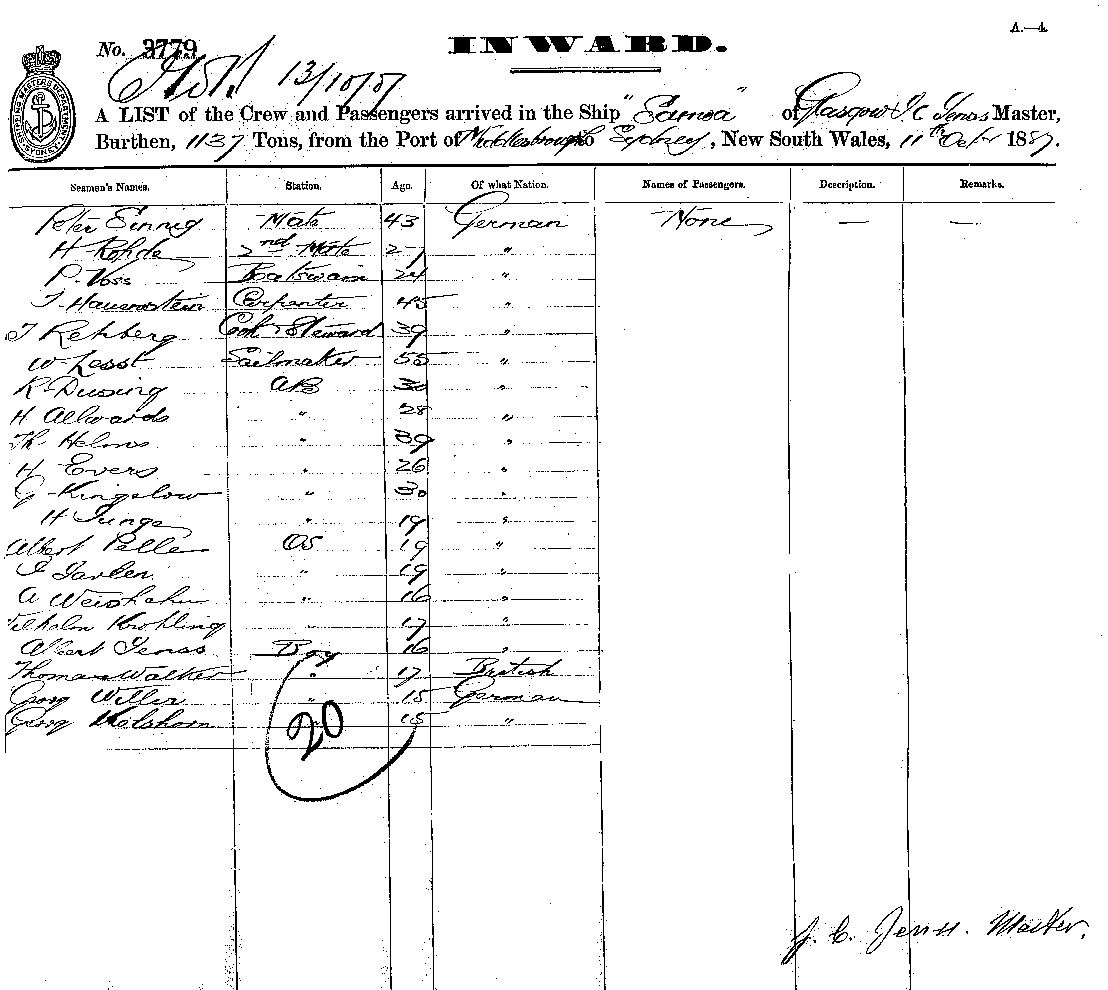 A.—4.
No. 3779 INWARD.
13/10/87
A LIST of the Crew and Passengers arrived in the Ship "Samoa" of Glasgow J. C. Jenss Master,
Burthen, 1137 Tons, from the Port of Middlesbrough to Sydney, New South Wales, 11th Octr 1887.
Seamen's Names. Station. Age. Of what Nation. Names of Passengers. Description. Remarks.
Peter Sinnig Mate 43 German None — —
H Rohde 2nd Mate 27 "
P. Voss Boatswain 24 "
Carpenter 45 "
J Rehberg Cook & Steward 39 "
W Lesst Sailmaker 55 "
R Dusing AB 30 "
H Allwards " 28 "
Th. Helms " 39 "
H Evers " 26 "
G Kingelow " 30 "
H Junge " 19 "
Albert Pelle OS 19 "
" 19 "
A Weishahn " 16 "
Wilhelm Krohling " 17 "
Albert Jenss Boy 16 "
Thomas Walker " 17 British
Georg Willer " 15 German
Georg Melshorn " 15 "
20
J. C. Jenss. Master.